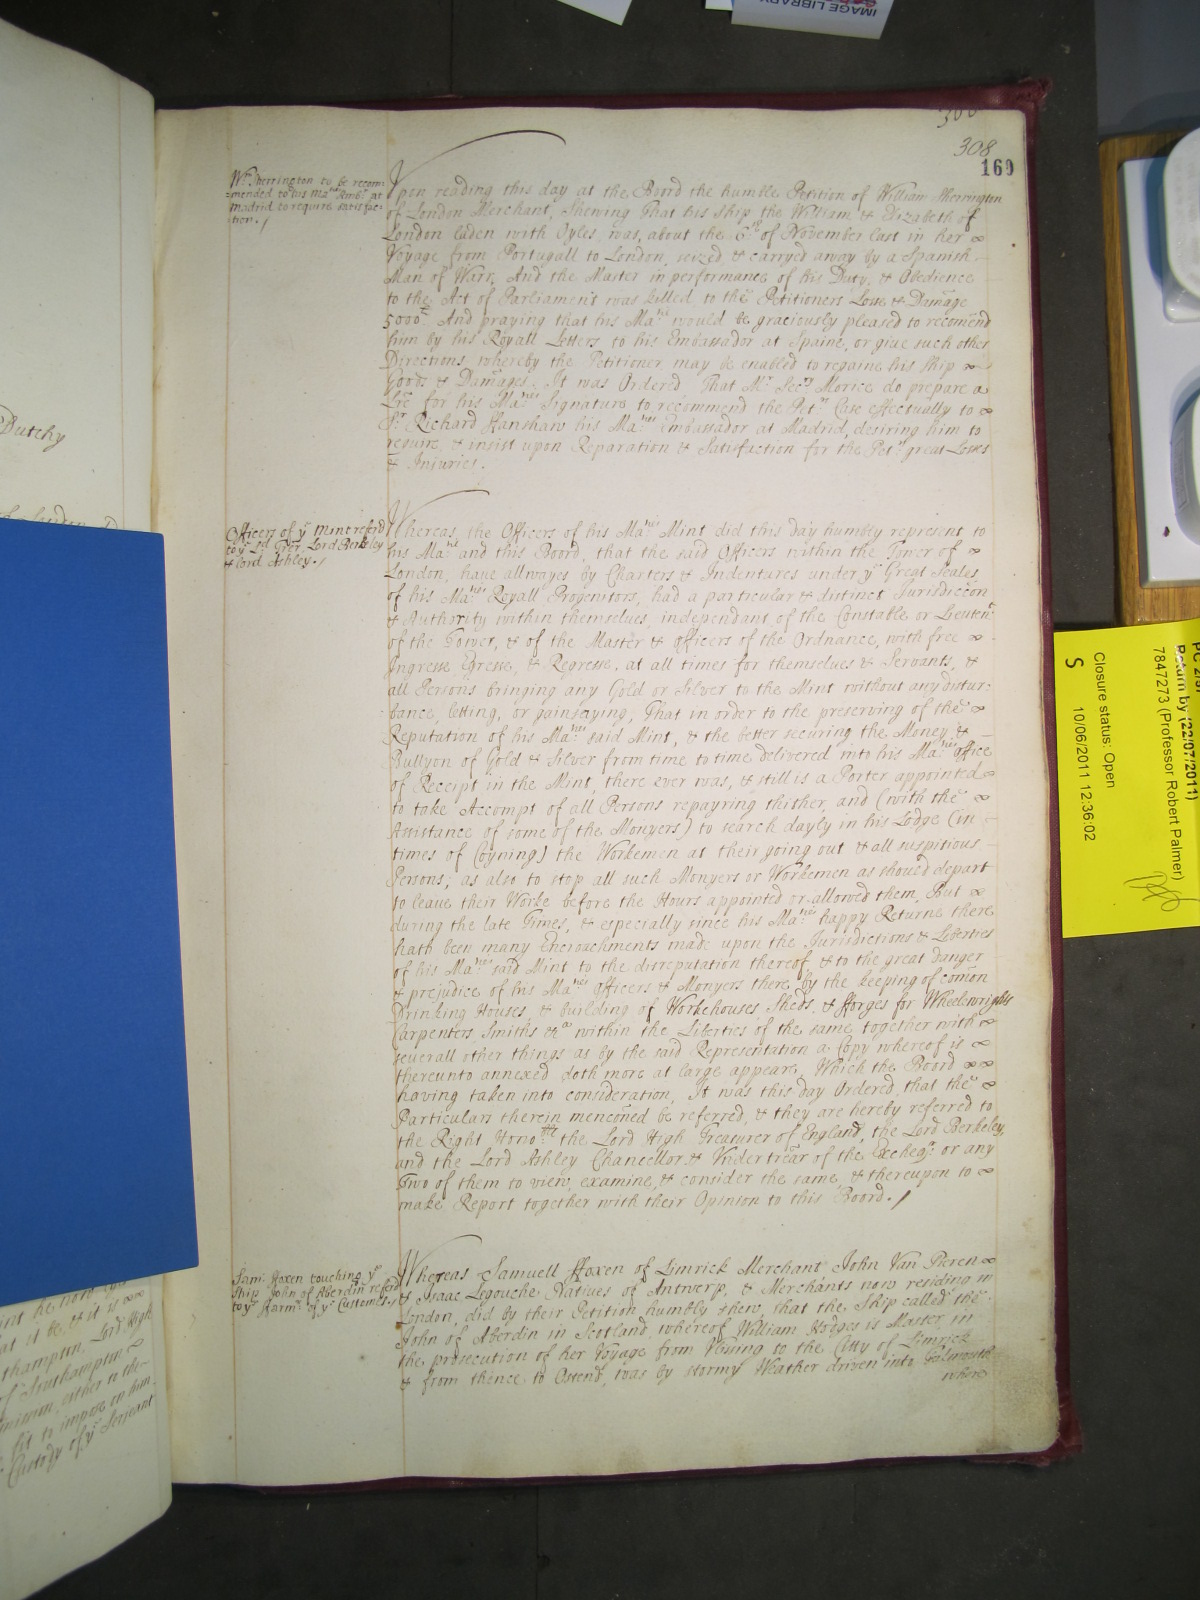 IMAGE LIBRARY
308
169
Wm. Therrington to be recom-
=mended to his Matys Ambr. at
Madrid to require satisfac-
tion. /
Upon reading this day at the Board the humble Petition of William Therrington
of London Merchant, Shewing That his Ship the William & Elizabeth of
London laden with Oyles was, about the 6th of November last in her
Voyage from Portugall to London, seized, & carryed away by a Spanish
Man of Warr, And the Master in performance of his Duty, & Obedience
to the Act of Parliament was killed to the Petitioners Losse & Damage
5000li. And praying that his Maty would be graciously pleased to recomend
him by his Royall Letters to his Embassador at Spaine, or give such other
Directions, whereby the Petitioner may be enabled to regaine his Ship
Goods & Damages. It was Ordered That Mr. Secry Morice do prepare a
Lre for his Mates Signature to recommend the Petrs Case effectually to
Sr. Richard Fanshaw his Mates Embassador at Madrid, desiring him to
require, & insist upon Reparation & Satisfaction for the Petrs great Losses
& Injuries.
Officers of ye Mint referd
to ye Ld Trer, Lord Berkeley
& Lord Ashley. /
Whereas, the Officers of his Mates Mint did this day humbly represent to
his Maty and this Board, that the said Officers within the Tower of
London, have allwayes by Charters & Indentures under ye Great Seales
of his Mates Royall Progenitors, had a particular & distinct Jurisdiccon
& Authority within themselves, independant of the Constable or Lieutent
of the Tower, & of the Master & Officers of the Ordnance, with free
Ingresse Egresse, & Regresse, at all times for themselves & Servants, &
all Persons bringing any Gold or Silver to the Mint without any distur-
bance, letting, or gainsaying, That in order to the preserving of the
Reputation of his Mates said Mint, & the better securing the Money &
Bullyon of Gold & Silver from time to time delivered into his Mates Office
of Receipt in the Mint, there ever was, & still is a Porter appointed
to take Accompt of all Persons repayring thither, and (with the
Assistance of some of the Monyers) to search dayly in his Lodge (in
times of Coyning) the Workemen at their going out & all suspitious
Persons; as also to stop all such Monyers or Workemen as should depart
to leave their Worke before the Hours appointed or allowed them, But
during the late Times, & especially since his Mates happy Returne there
hath been many Encroachments made upon the Jurisdictions & Liberties
of his Mates said Mint to the disreputation thereof, & to the great danger
& prejudice of his Mates Officers & Monyers there, by the keeping of comon
Drinking Houses, & building of Workehouses Sheds, & fforges for Wheelwrights
Carpenters Smiths &ca within the Liberties of the same together with
severall other things as by the said Representation a Copy whereof is
thereunto annexed doth more at large appeare, Which the Board
having taken into consideration, It was this day Ordered, that the
Particulars therein menconed be referred, & they are hereby referred to
the Right Honoble the Lord High Treasurer of England, the Lord Berkeley,
and the Lord Ashley Chancellor & Undertrear of the Excheqr. or any
Two of them to view, examine, & consider the same, & thereupon to
make Report together with their Opinion to this Board. /
Sam: ffoxen touching ye
Ship John of Aberdin referd
to ye ffarmrs of ye Customes. /
Whereas Samuell ffoxen of Limrick Merchant John Van Peren
& Isaac Legouche Natives of Antwerp, & Merchants now residing in
London, did by their Petition humbly shew, that the Ship called the
John of Aberdin in Scotland, whereof William Hodges is Master, in
the prosecution of her Voyage from Vlissing to the Citty of Limrick
& from thence to Ostend, was by stormy Weather driven into Falmouth
where
Dutchy
that it be, & it is
Lord High
of Southampton
fit to impose on him
Custody of ye Serjeant
Return by (22/07/2011)
7847273 (Professor Robert Palmer)
Closure status: Open
S 10/06/2011 12:36:02